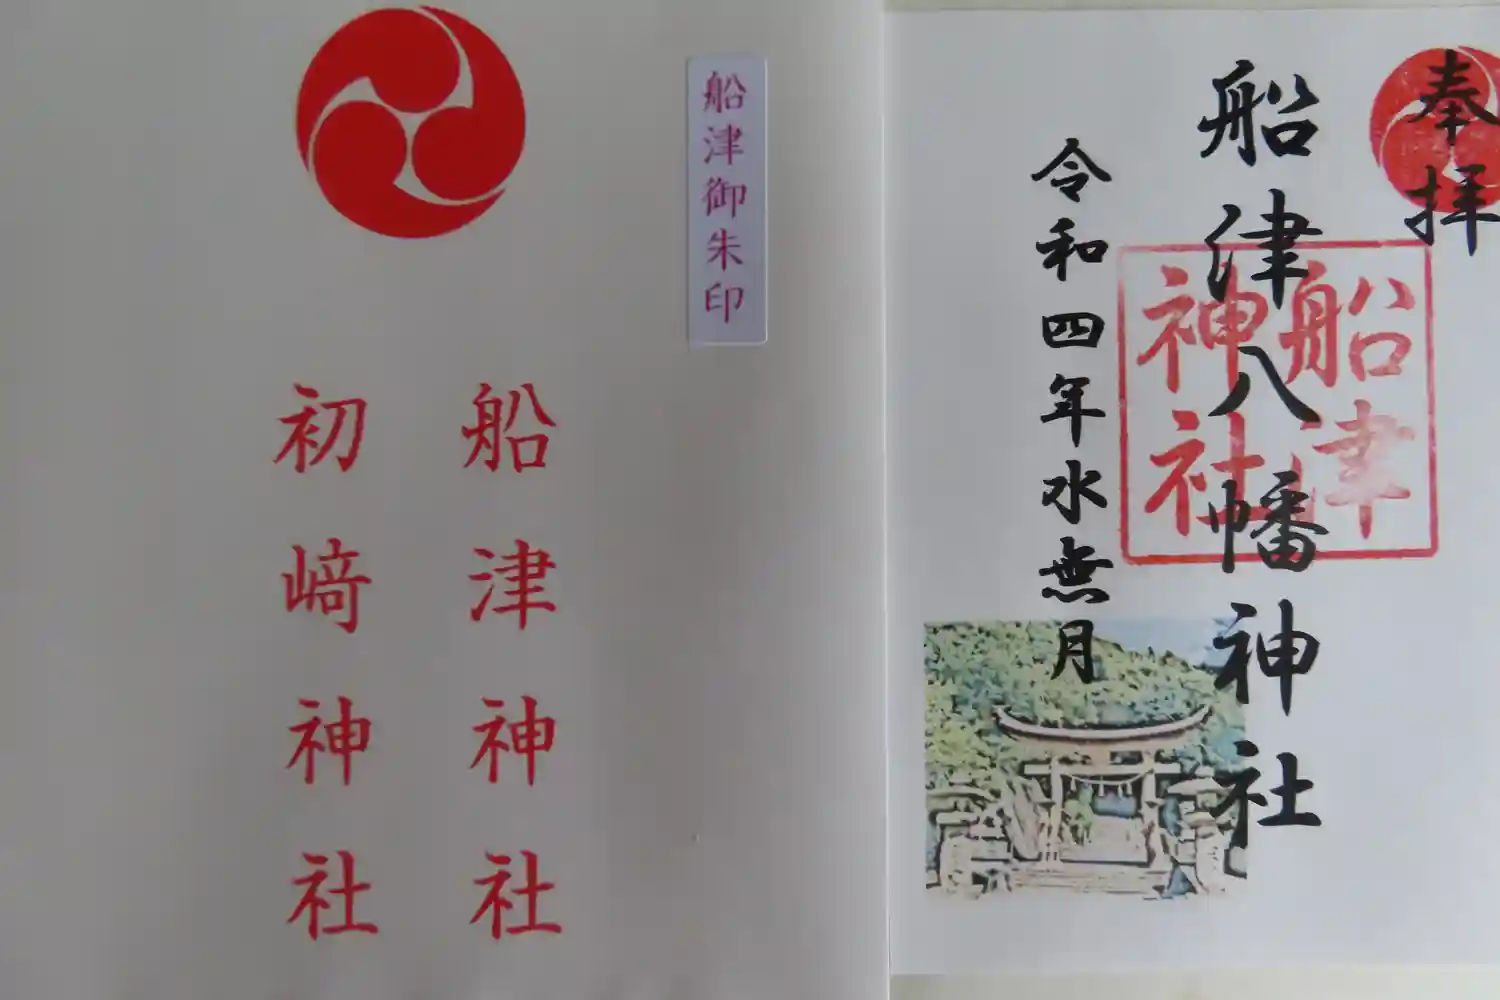 船津御朱印
船津神社
初﨑神社
奉拝
船津八幡神社
船津
神社
令和四年水無月